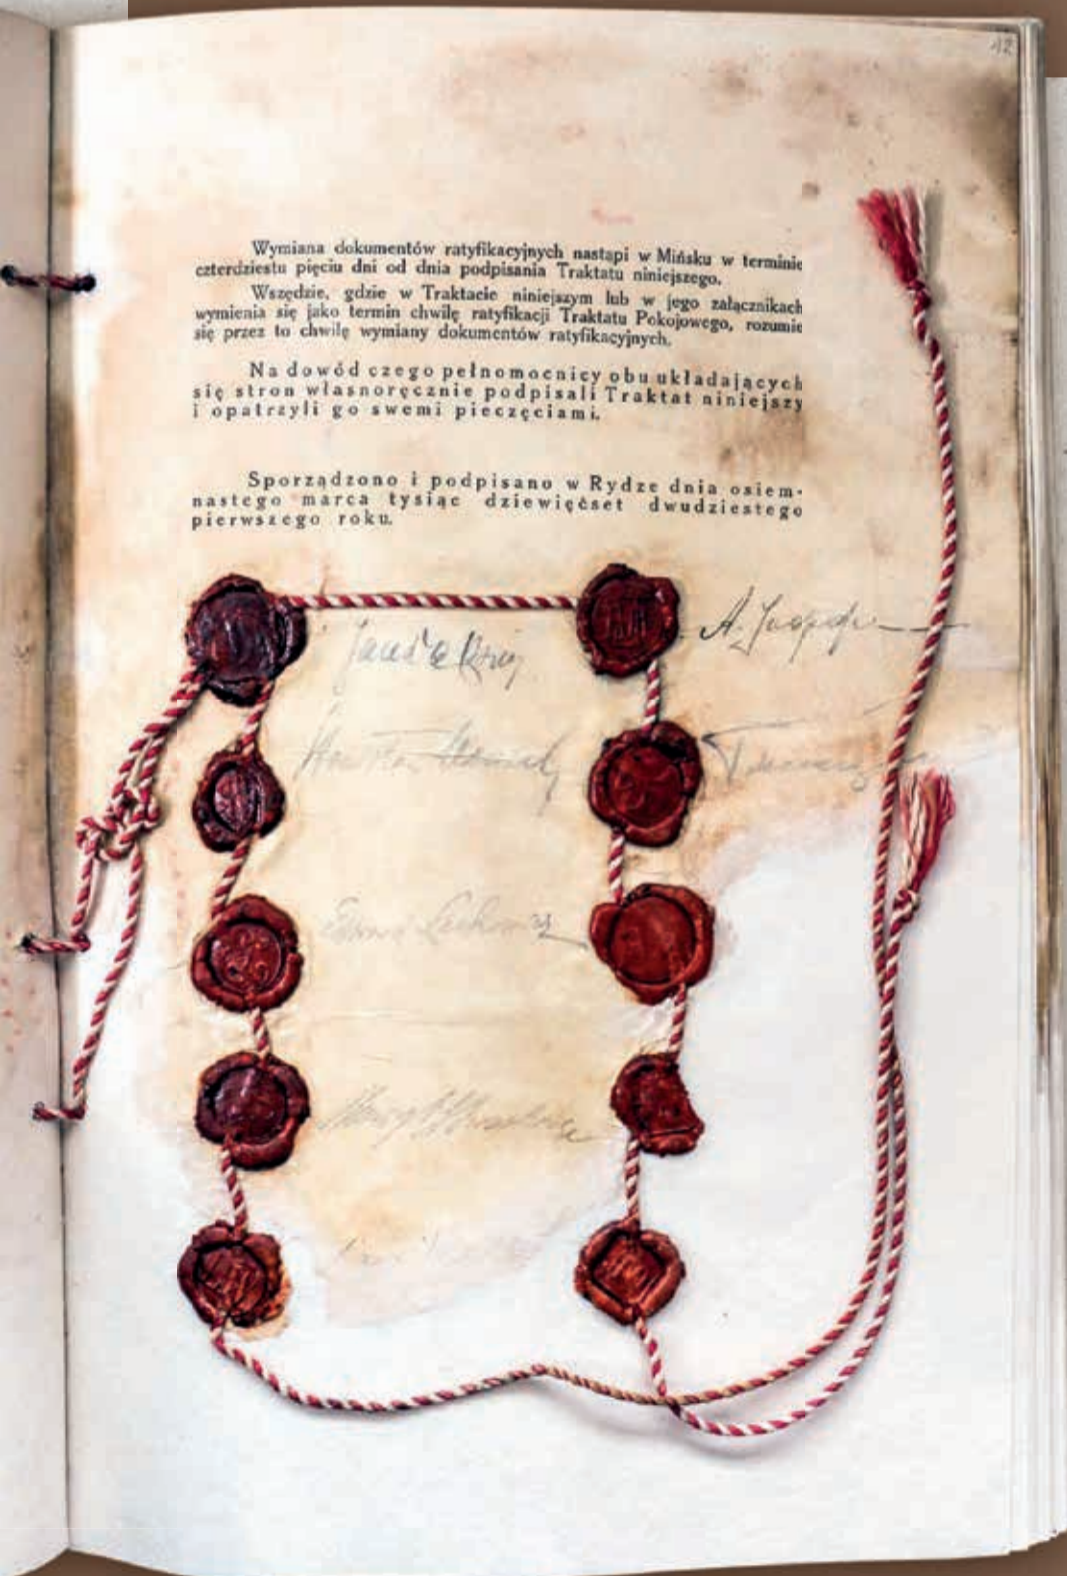 42
Wymiana dokumentów ratyfikacyjnych nastąpi w Mińsku w terminie
czterdziestu pięciu dni od dnia podpisania Traktatu niniejszego.
Wszędzie, gdzie w Traktacie niniejszym lub w jego załącznikach
wymienia się jako termin chwilę ratyfikacji Traktatu Pokojowego, rozumie
się przez to chwilę wymiany dokumentów ratyfikacyjnych.
Na dowód czego pełnomocnicy obu układających
się stron własnoręcznie podpisali Traktat niniejszy
i opatrzyli go swemi pieczęciami.
Sporządzono i podpisano w Rydze dnia osiem-
nastego marca tysiąc dziewięćset dwudziestego
pierwszego roku.
A.